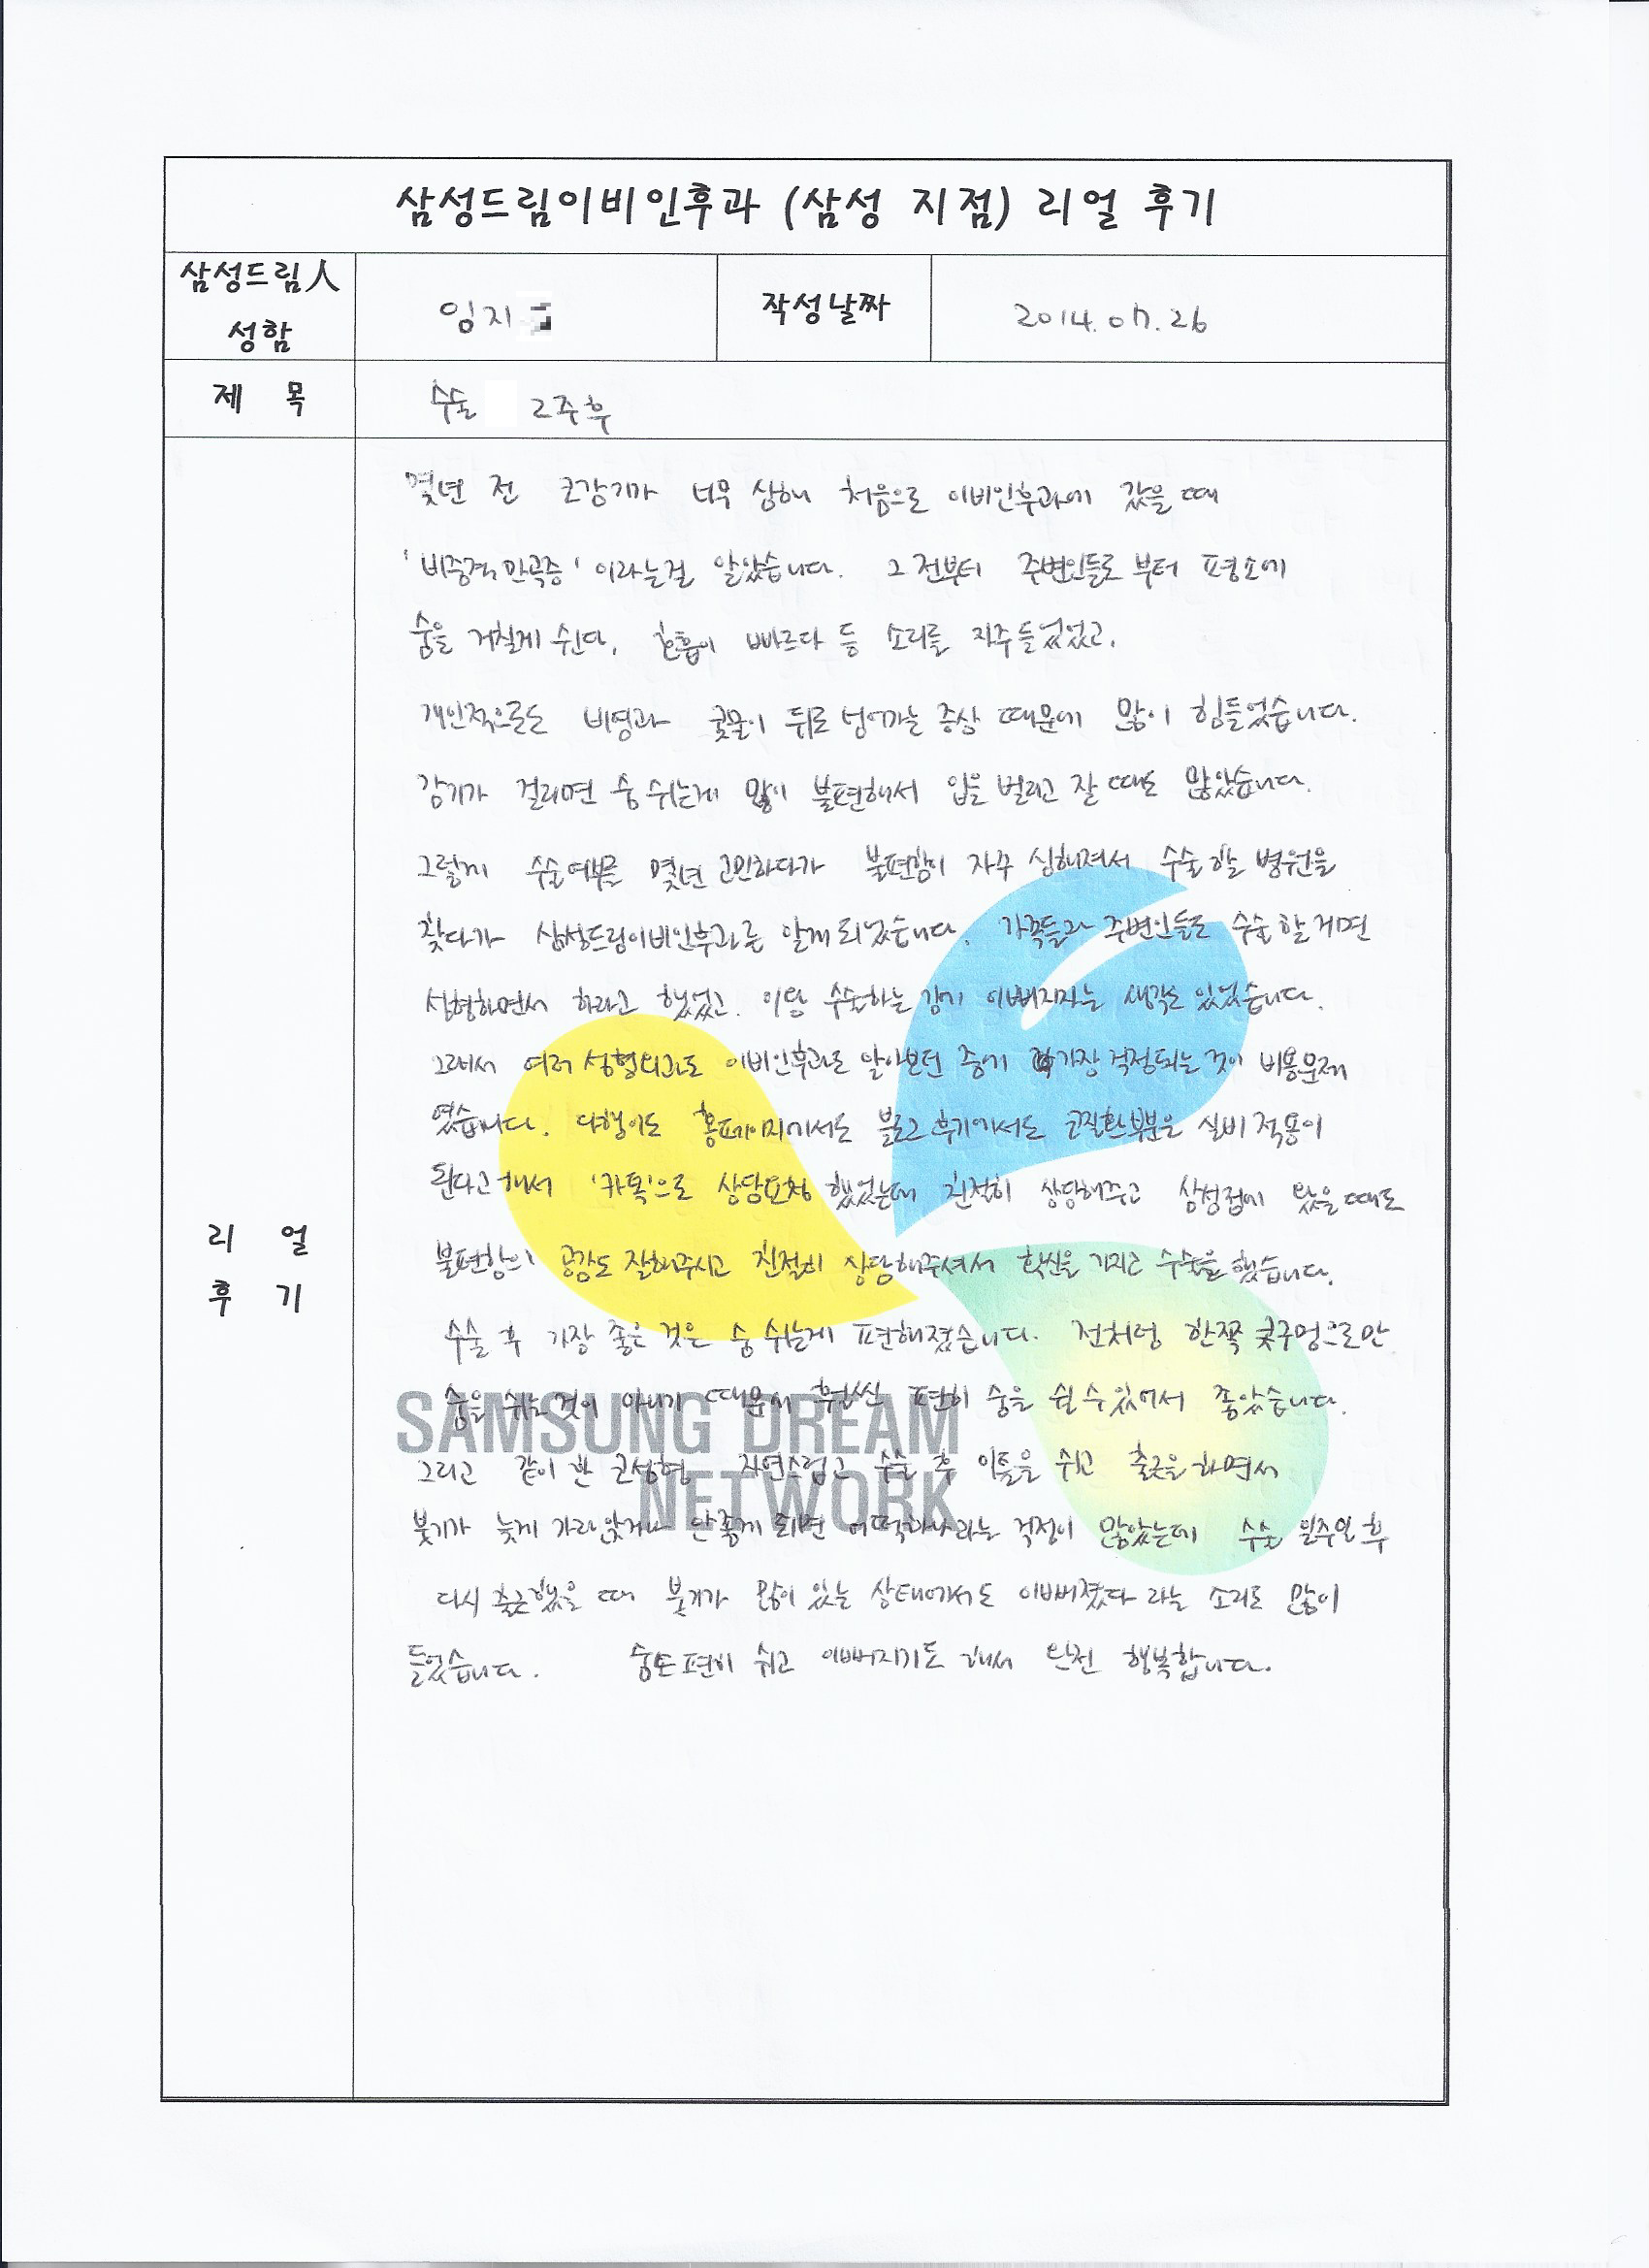 삼성드림이비인후과 (삼성 지점) 리얼 후기
삼성드림人
성함
임지
작성날짜
2014. 07. 26
제 목
수술 2주후
리 얼
후 기
몇년 전 코감기가 너무 심해 처음으로 이비인후과에 갔을 때
'비중격만곡증' 이라는걸 알았습니다. 그 전부터 주변인들로 부터 평소에
숨을 거칠게 쉰다, 호흡이 빠르다 등 소리를 자주들었었고,
개인적으로는 비염과 콧물이 뒤로 넘어가는 증상 때문에 많이 힘들었습니다.
감기가 걸리면 숨 쉬는게 많이 불편해서 입을 벌리고 잘 때도 많았습니다.
그렇게 수술여부를 몇년 고민하다가 불편함이 자꾸 심해져서 수술할 병원을
찾다가 삼성드림이비인후과를 알게되었습니다. 가족들과 주변인들도 수술할꺼면
성형하면서 하라고 했었고, 이왕 수술하는 김에 이뻐지자는 생각도 있었습니다.
그래서 여러 성형외과도 이비인후과도 알아보던 중에 가장 걱정되는 것이 비용문제
였습니다. 다행이도 홈페이지에서도 블로그 후기에서도 코질환부분은 실비 적용이
된다고해서 '카톡'으로 상담요청 했었는데 친절히 상담해주고 삼성점에 왔을때도
불편함의 공감도 잘해주시고 친절히 상담해주셔서 확신을 가지고 수술을 했습니다.
수술 후 가장 좋은 것은 숨 쉬는게 편해졌습니다. 전처럼 한쪽 콧구멍으로만
숨을 쉬는 것이 아니기 때문에 훨씬 편히 숨을 쉴수있어서 좋았습니다.
SAMSUNG DREAM
NETWORK
그리고 같이 한 코성형 자연스럽고 수술 후 이틀을 쉬고 출근을 하면서
붓기가 늦게 가라앉거나 안좋게 되면 어떡하나라는 걱정이 많았는데 수술 일주일 후
다시 출근했을 때 붓기가 많이 있는 상태에서도 이뻐졌다 라는 소리도 많이
들었습니다. 숨도 편히 쉬고 이뻐지기도 해서 완전 행복합니다.